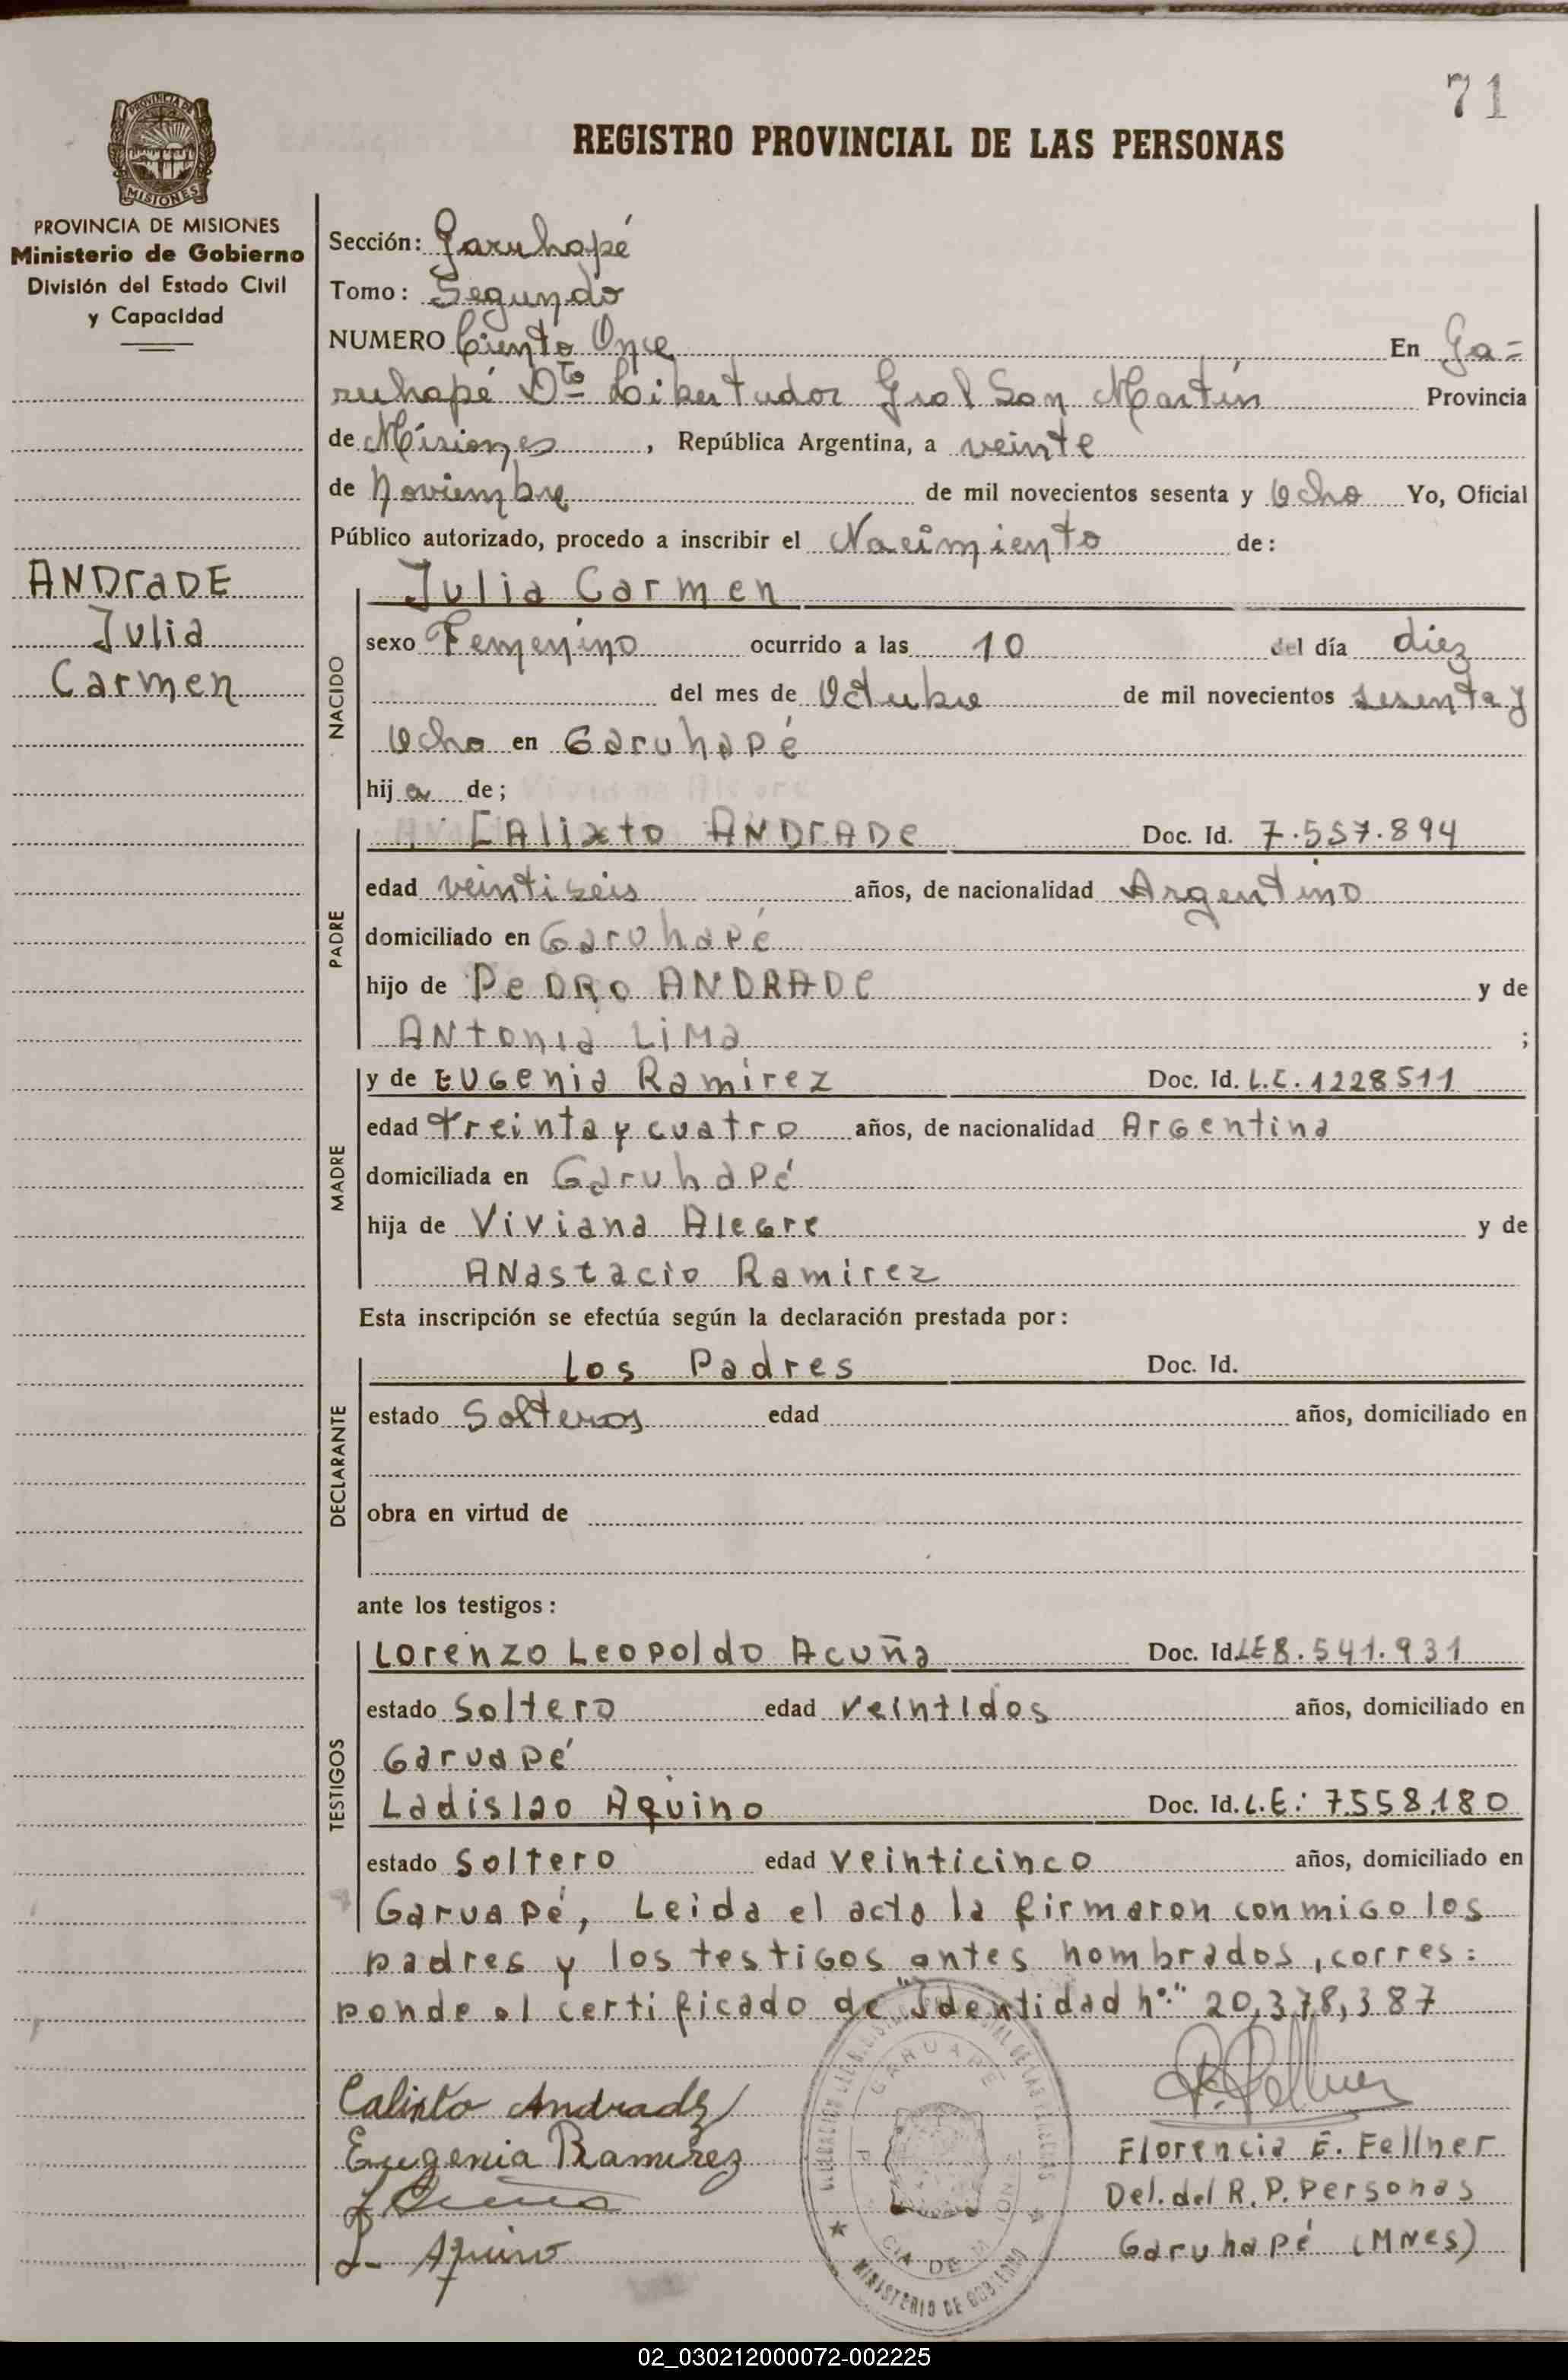 71
REGISTRO PROVINCIAL DE LAS PERSONAS
PROVINCIA DE MISIONES
MISIONES
PROVINCIA DE MISIONES
Ministerio de Gobierno
División del Estado Civil
y Capacidad
ANDraDE
Julia
Carmen
Sección: Garuhapé
Tomo: Segundo
NUMERO Ciento Once En Ga=
ruhapé Dto Libertador Gral San Martín Provincia
de Misiones, República Argentina, a veinte
de Noviembre de mil novecientos sesenta y Ocho Yo, Oficial
Público autorizado, procedo a inscribir el Nacimiento de:
NACIDO
Julia Carmen
sexo Femenino ocurrido a las 10 del día diez
del mes de Octubre de mil novecientos sesenta y
Ocho en Garuhapé
hija de;
PADRE
CAlixto ANDrADe Doc. Id. 7.557.894
edad veintiseis años, de nacionalidad Argentino
domiciliado en Garuhapé
hijo de PeDRo ANDRADe y de
ANtonia LiMa ;
MADRE
y de EUGenia Ramirez Doc. Id. L.C. 1228511
edad treinta y cuatro años, de nacionalidad ArGentina
domiciliada en Garuhapé
hija de Viviana AleGre y de
ANastacio Ramirez
Esta inscripción se efectúa según la declaración prestada por:
DECLARANTE
Los Padres Doc. Id.
estado Solteros edad años, domiciliado en
obra en virtud de
ante los testigos:
TESTIGOS
Lorenzo Leopoldo Acuña Doc. Id. LE 8.541.931
estado Soltero edad veintidos años, domiciliado en
Garuapé
Ladislao Aquino Doc. Id. L.E: 7.558.180
estado Soltero edad veinticinco años, domiciliado en
Garuapé, Leida el acta la firmaron conmiGo los
padres y los testiGos antes nombrados, corres=
ponde al certificado de "Identidad nº" 20,378,387
Calixto Andrade
Eugenia Ramirez
L Acuña
L- Aquino
GARUAPE
MINISTERIO DE GOBIERNO
Florencia E. Fellner
Del. del R. P. Personas
Garuhapé (MNes)
02_030212000072-002225